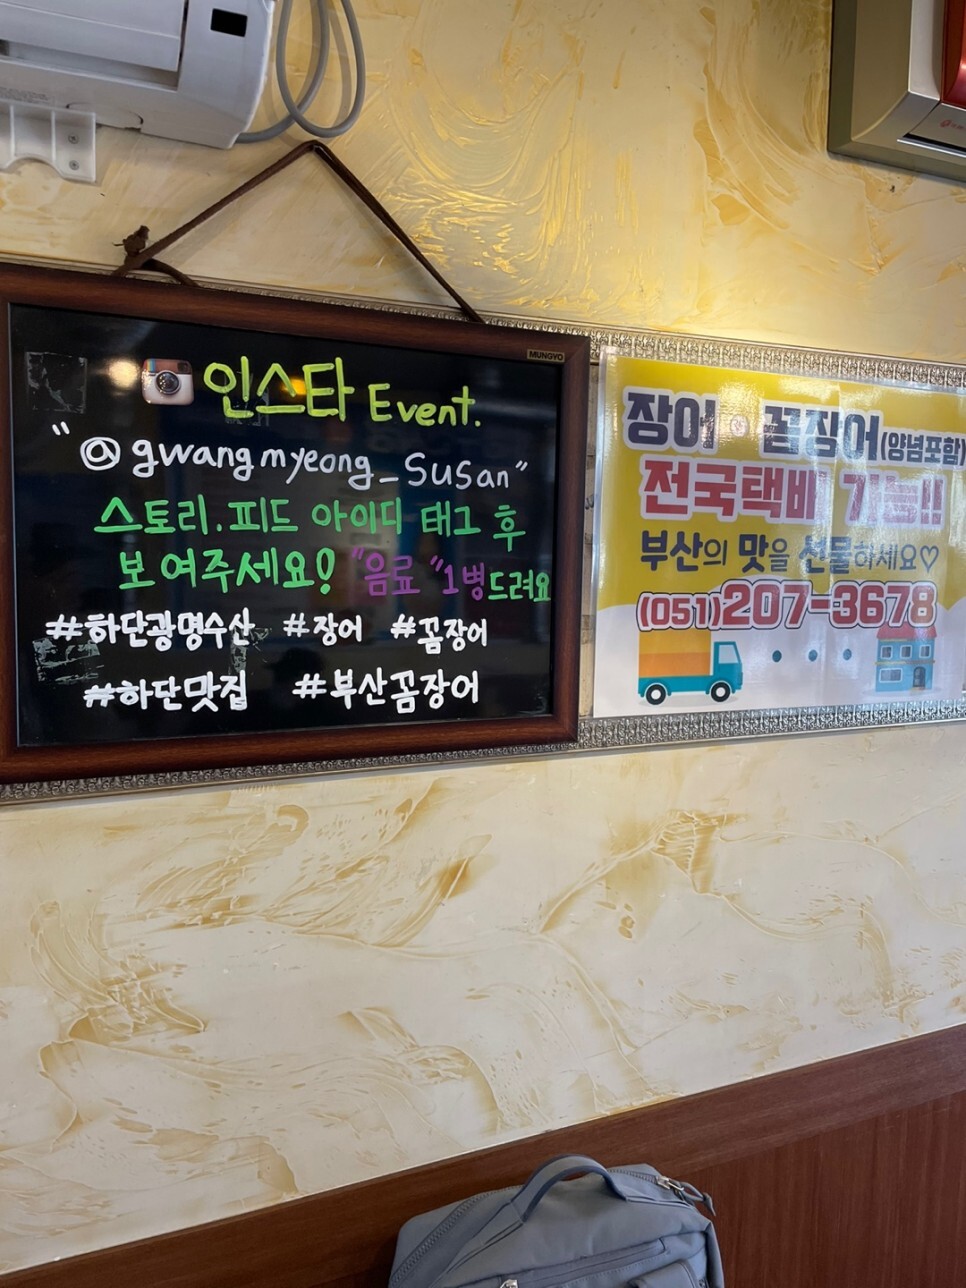 MUNGYO
인스타 Event.
"@gwangmyeong_susan"
스토리.피드 아이디 태그 후
보여주세요! "음료"1병드려요
#하단광명수산 #장어 #꼼장어
#하단맛집 #부산꼼장어
장어·꼼장어(양념포함)
전국택배 가능!!
부산의 맛을 선물하세요♡
(051)207-3678